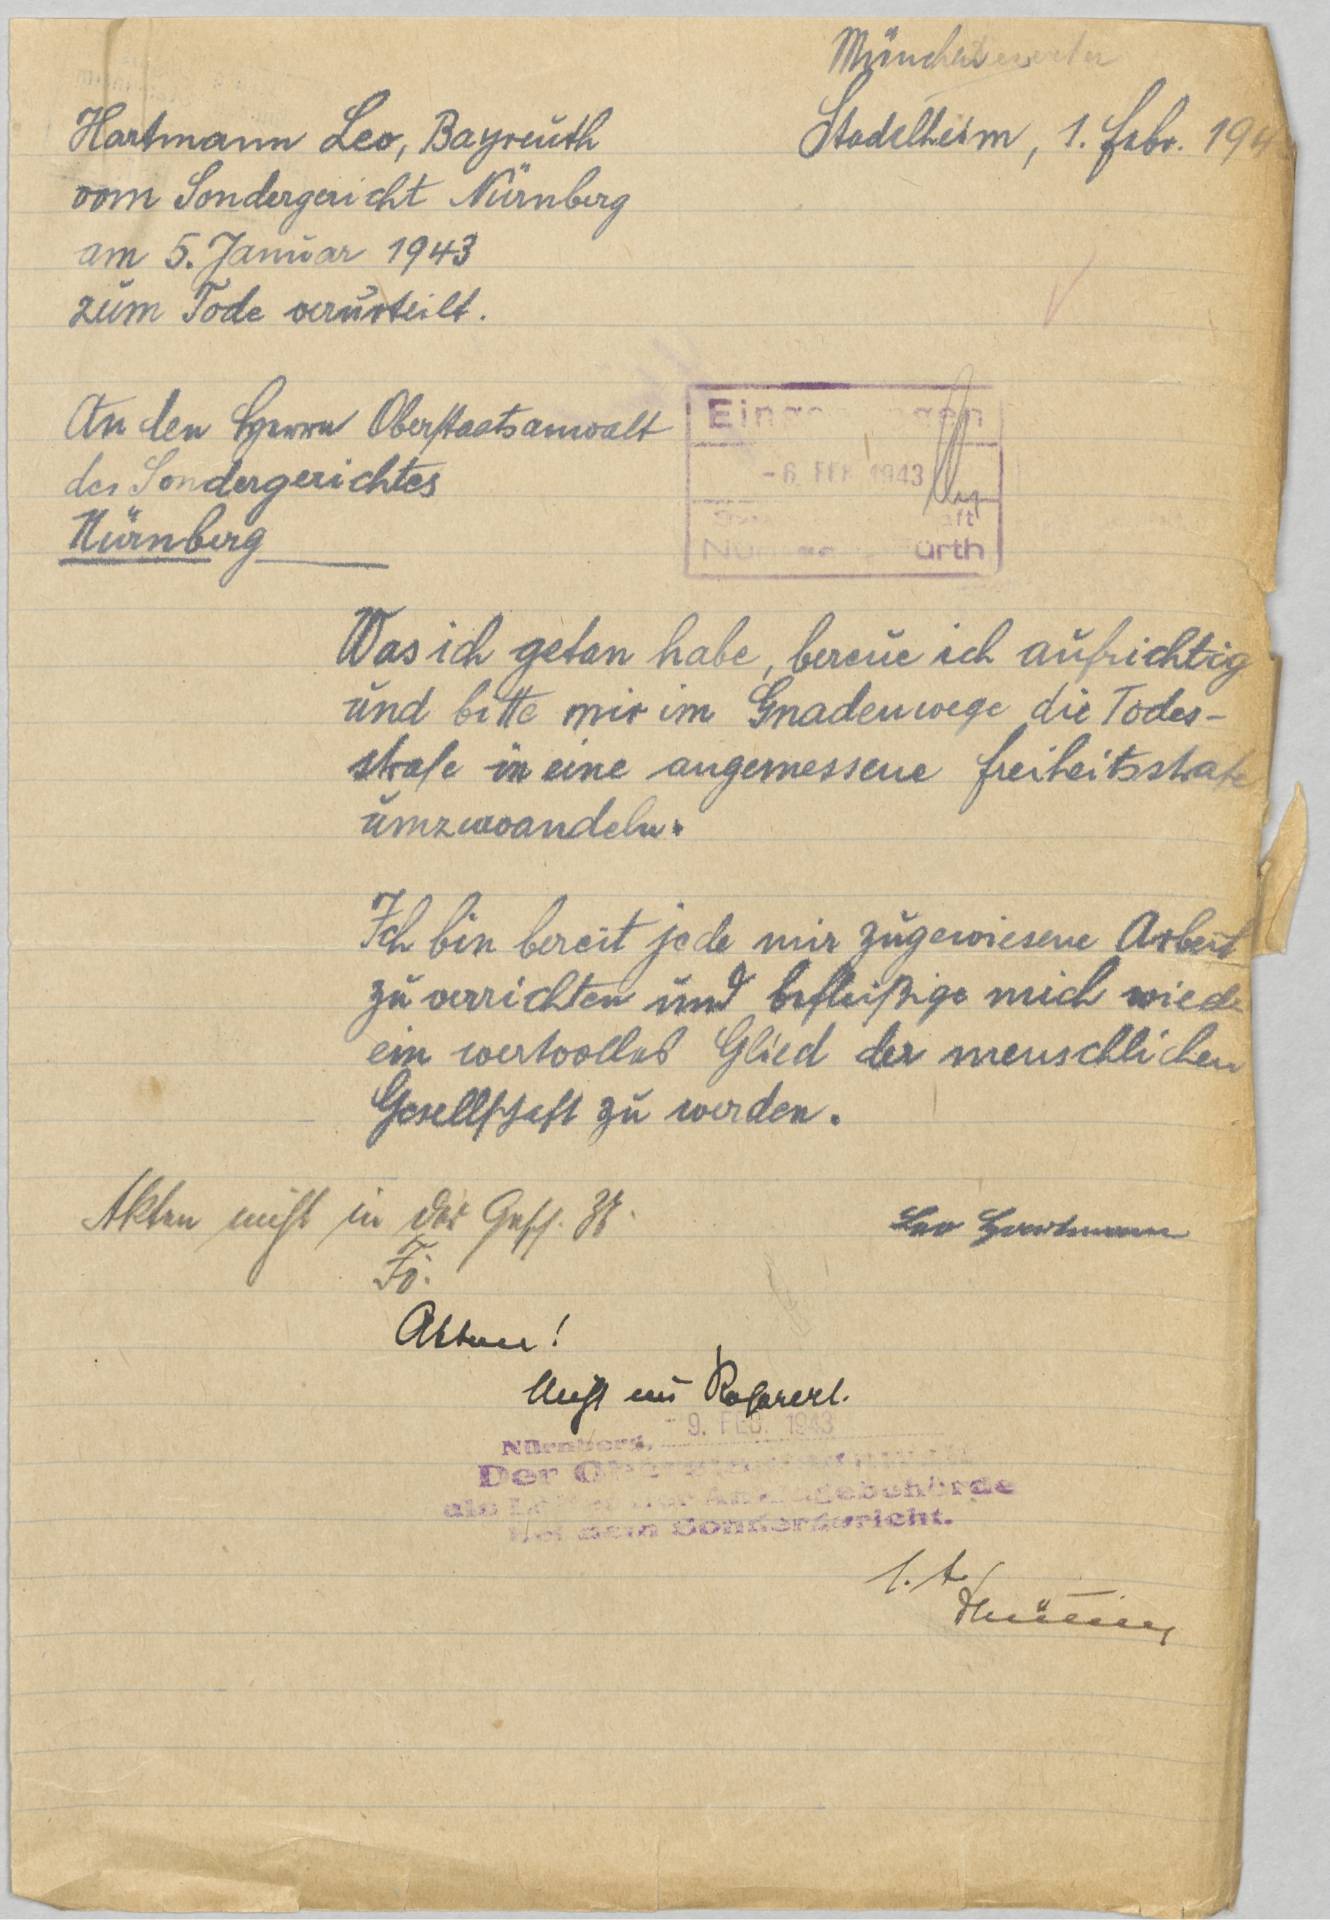 München
Stadelheim, 1. Febr. 194
Hartmann Leo, Bayreuth
vom Sondergericht Nürnberg
am 5. Januar 1943
zum Tode verurteilt.
An den Herrn Oberstaatsanwalt
des Sondergerichtes
Nürnberg
Eingegangen
- 6. FEB. 1943
Nürnberg-Fürth
Was ich getan habe, bereue ich aufrichtig
und bitte mir im Gnadenwege die Todes-
strafe in eine angemessene Freiheitsstrafe
umzuwandeln.
Ich bin bereit jede mir zugewiesene Arbeit
zu verrichten und befleißige mich wieder
ein wertvolles Glied der menschlichen
Gesellschaft zu werden.
Akten nicht in der
Leo Hartmann
Akten!
- 9. FEB. 1943
Nürnberg,
Der Oberstaatsanwalt
als Leiter der Anklagebehörde
bei dem Sondergericht.